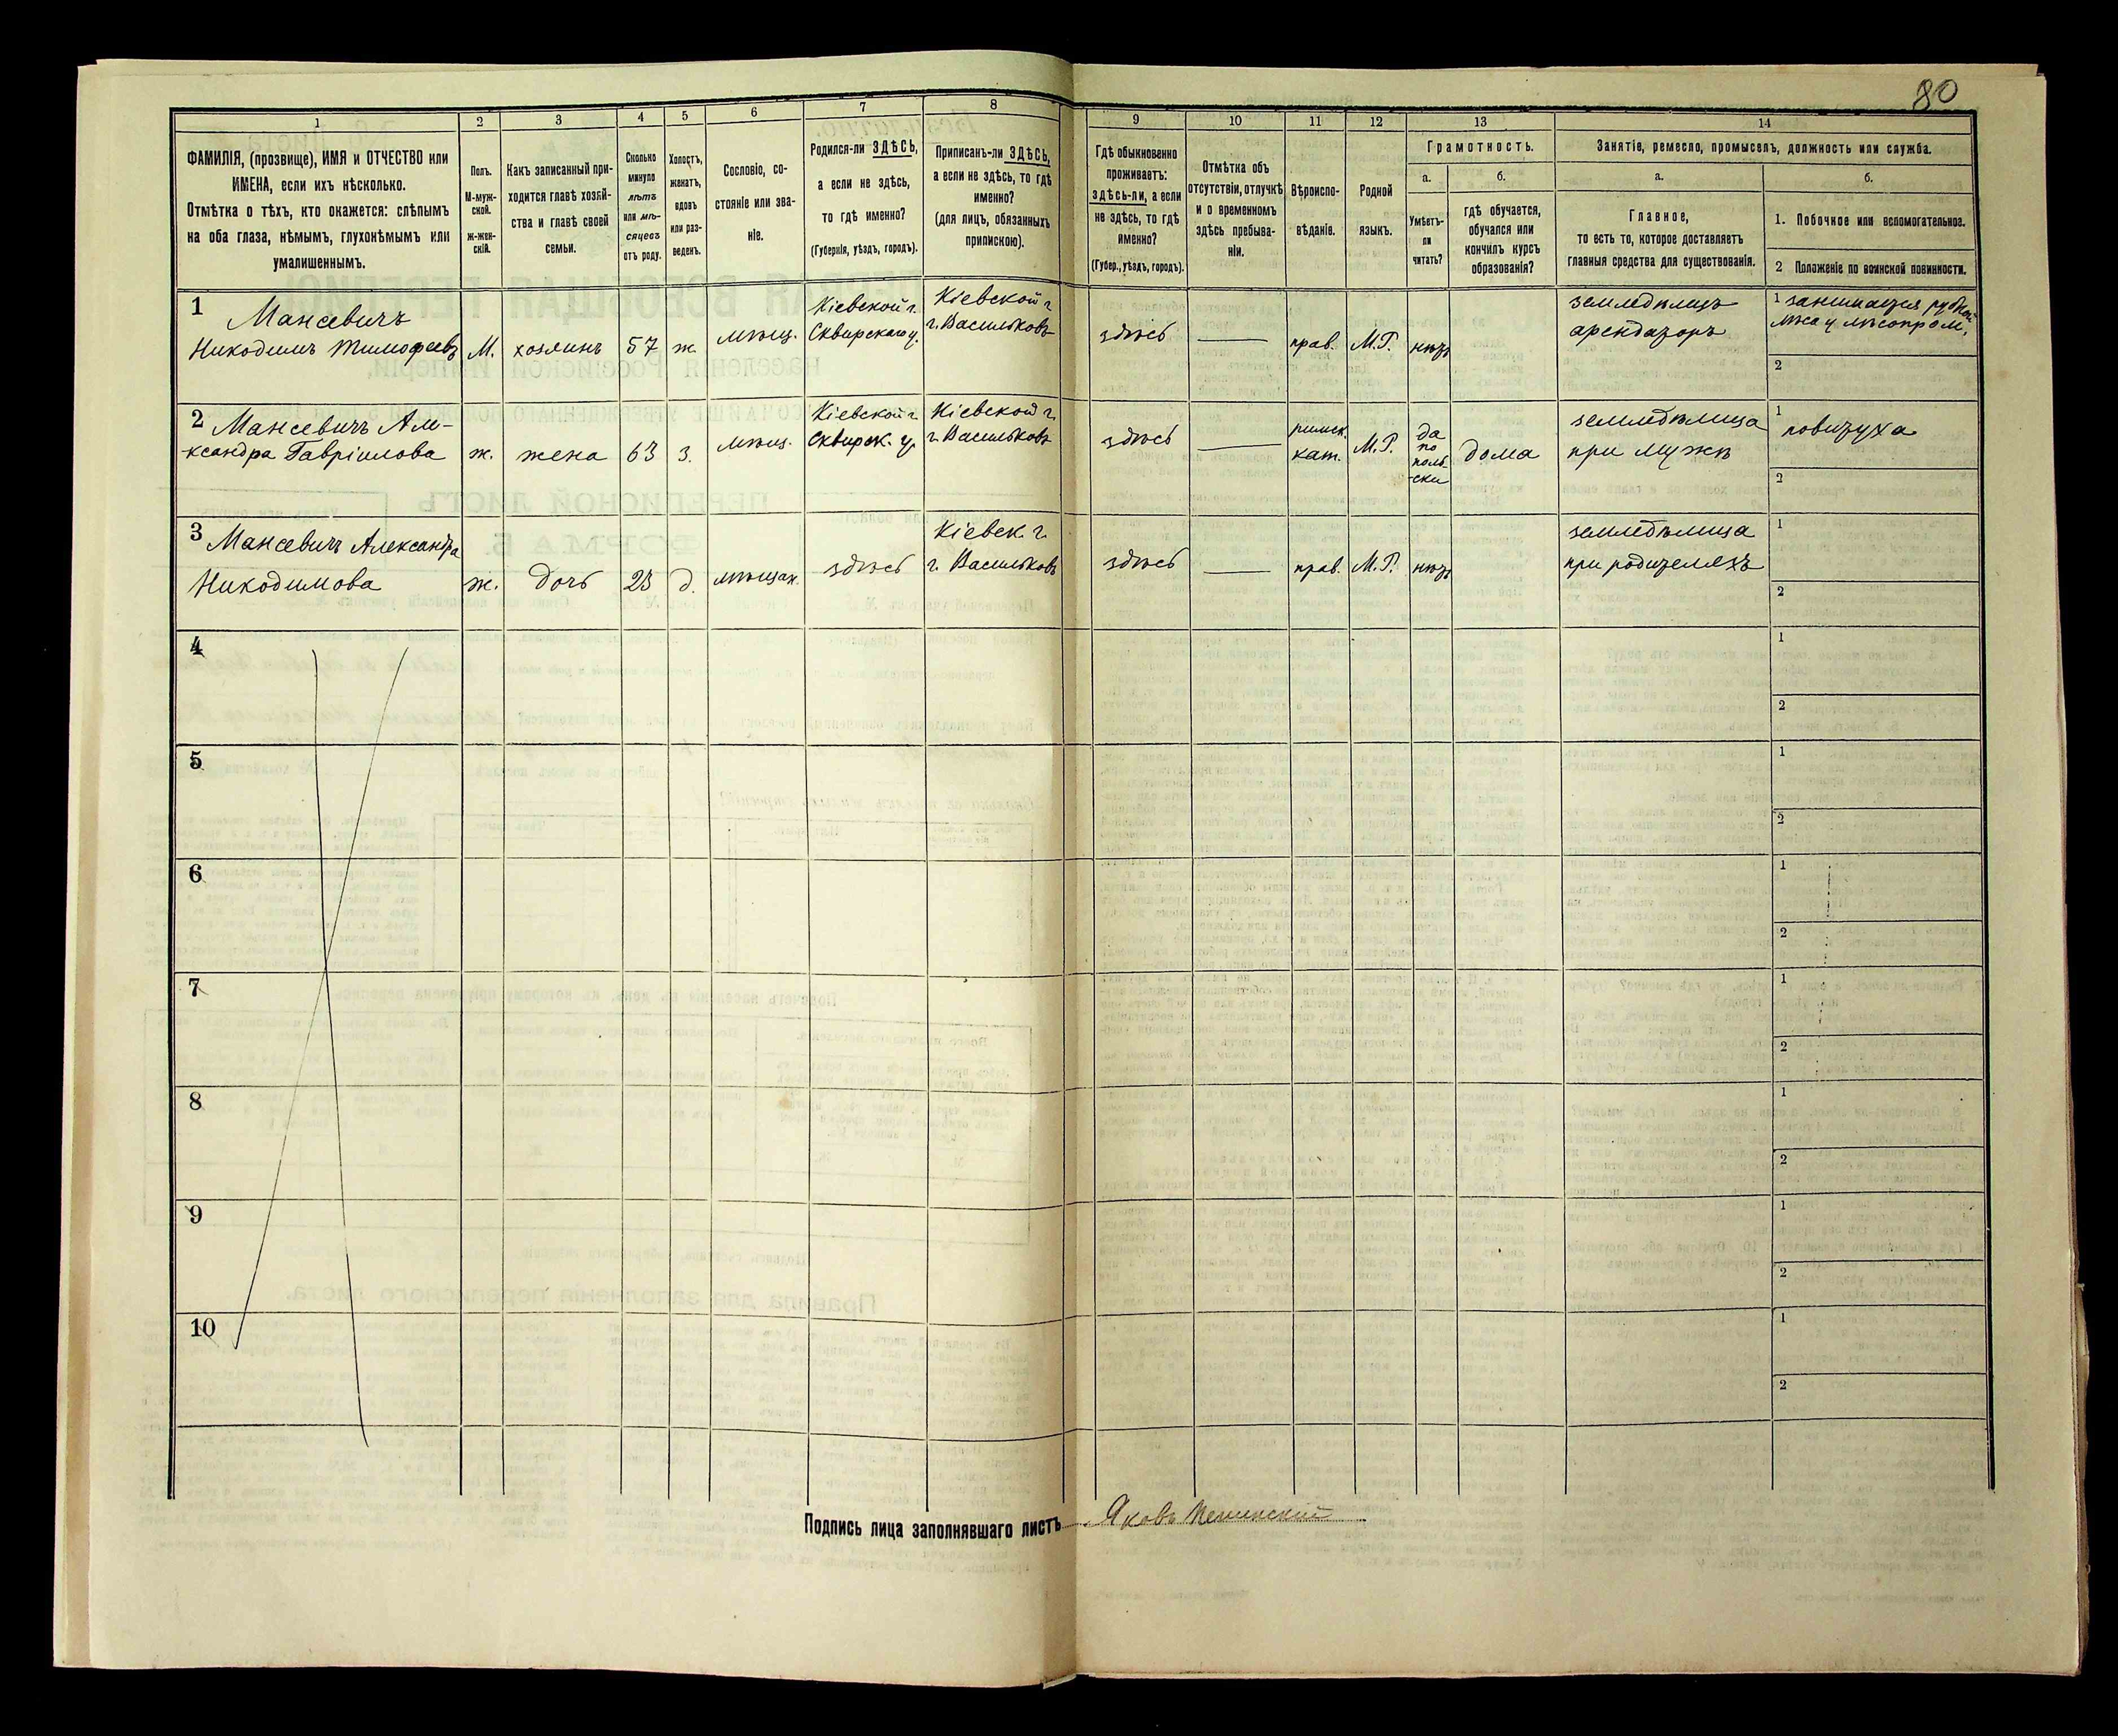 80
1
2
3
4
5
6
7
8
9
10
11
12
13
14
ФАМИЛІЯ, (прозвище), ИМЯ и ОТЧЕСТВО или
ИМЕНА, если ихъ нѣсколько.
Отмѣтка о тѣхъ, кто окажется: слѣпымъ
на оба глаза, нѣмымъ, глухонѣмымъ или
умалишеннымъ.
Полъ.
М-муж-
ской.
ж-жен-
скій.
Какъ записанный при-
ходится главѣ хозяй-
ства и главѣ своей
семьи.
Сколько
минуло
лѣтъ
или мѣ-
сяцевъ
отъ роду.
Холостъ,
женатъ,
вдовъ
или раз-
веденъ.
Сословіе, со-
стояніе или зва-
ніе.
Родился-ли ЗДѢСЬ,
а если не здѣсь,
то гдѣ именно?
(Губернія, уѣздъ, городъ).
Приписанъ-ли ЗДѢСЬ,
а если не здѣсь, то гдѣ
именно?
(для лицъ, обязанныхъ
припискою).
Гдѣ обыкновенно
проживаетъ:
здѣсь-ли, а если
не здѣсь, то гдѣ
именно?
(Губер., уѣздъ, городъ).
Отмѣтка объ
отсутствіи, отлучкѣ
и о временномъ
здѣсь пребыва-
ніи.
Вѣроиспо-
вѣданіе.
Родной
языкъ.
Грамотность.
а.
Умѣетъ-
ли
читать?
б.
гдѣ обучается,
обучался или
кончилъ курсъ
образованія?
Занятіе, ремесло, промыселъ, должность или служба.
а.
Главное,
то есть то, которое доставляетъ
главныя средства для существованія.
б.
1. Побочное или вспомогательное.
2 Положеніе по воинской повинности.
1
Мансевичъ
Никодимъ Тимофеевъ
М.
хозяинъ
57
ж.
мѣщ.
Кіевской г.
Сквирскаго у.
Кіевской г
г. Васильковъ
здѣсь
прав.
М.Р.
нѣтъ
земледѣлецъ
арендаторъ
1 занимается рубкой
лѣса у лѣсопром.
2
2 Мансевичъ Але-
ксандра Гавріилова
ж.
жена
63
з.
мѣщ.
Кіевской г.
Сквирск. у.
Кіевской г.
г. Васильковъ
здѣсь
римск.
кат.
М.Р.
да
по
поль-
ски
дома
земледѣлица
при мужѣ
1
повитуха
2
3 Мансевичъ Александра
Никодимова
ж.
дочь
23
д.
мѣщан.
здѣсь
Кіевск. г.
г. Васильковъ
здѣсь
прав.
М.Р.
нѣтъ
земледѣлица
при родителяхъ
1
2
4
1
2
5
1
2
6
1
2
7
1
2
8
1
2
9
1
2
10
1
2
Подпись лица заполнявшаго листъ
Яковъ